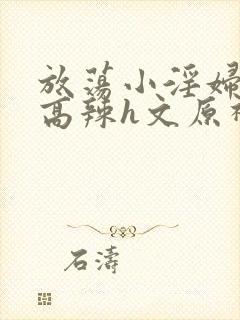 放荡小淫婦
高辣h文原
石濤